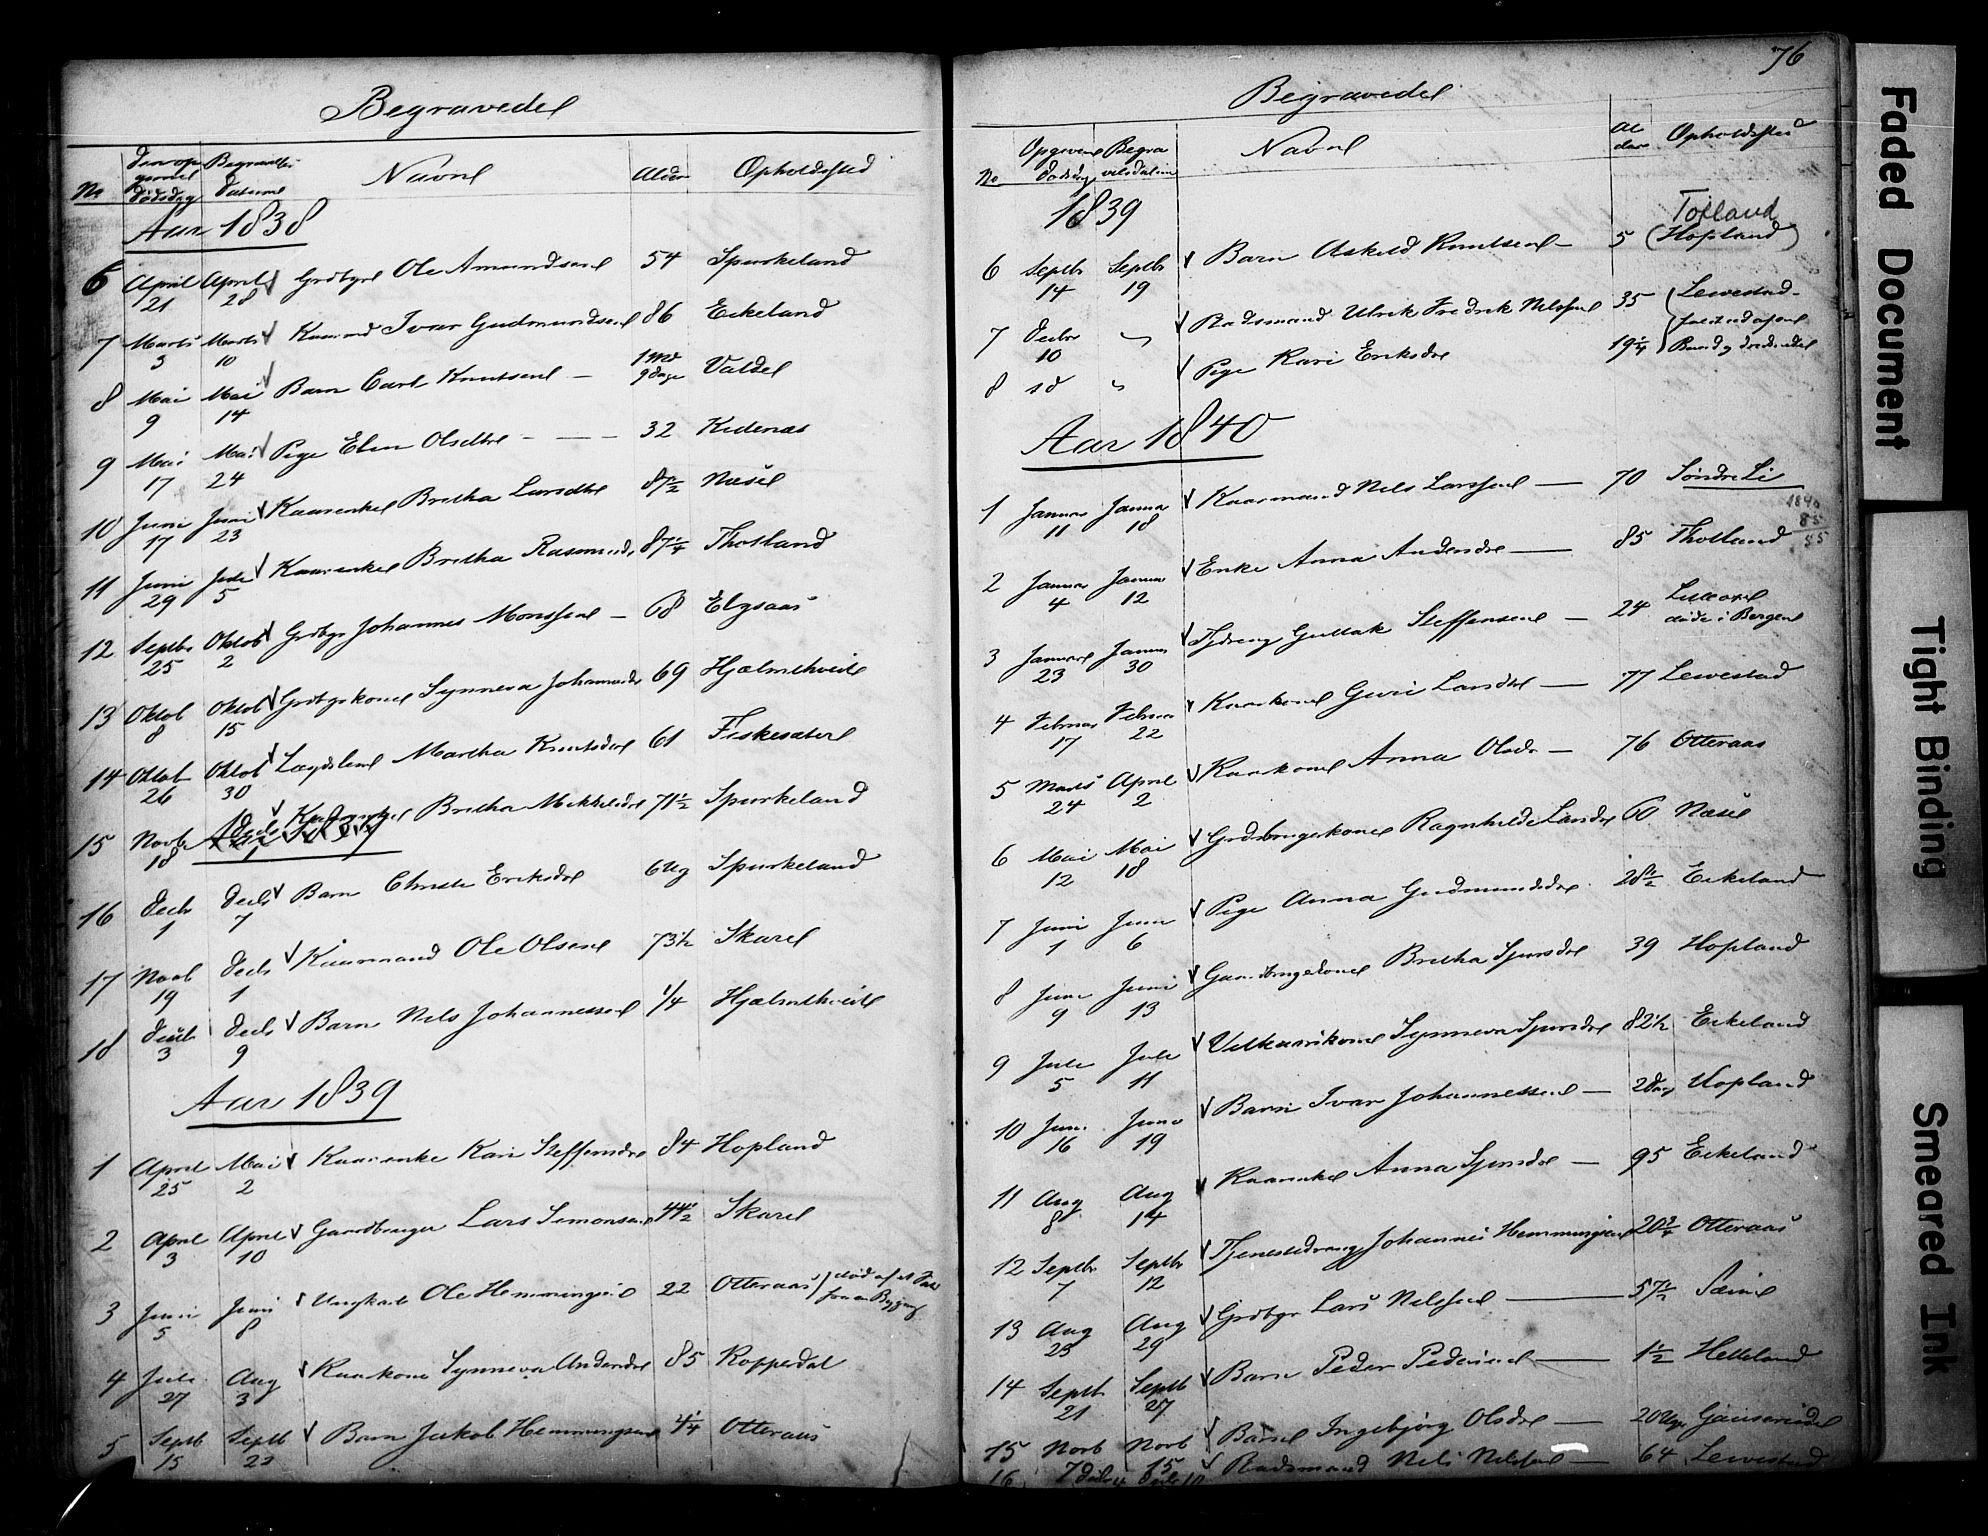 Begravede
No
Den op
givne
Dødsdag
Begravelses
Daterne
Navne
Alder
Opholdssted
Aar 1838
6 April 21 April 28 Grdbgr Ole Amundsen 54 Spurkeland
7 Marts 3 Marts 10 Kaarmand Ivar Gudmundsen 86 Eikeland
8 Mai 9 Mai 14 Barn Carl Knutsen - 1 Md 9 Dage Valde
9 Mai 17 Mai 24 Pige Elen Olsdtr - - - 32 Kidenæs
10 Juni 17 Juni 23 Kaarenke Britha Larsdtr 87 1/2 Næse
11 Juni 29 Juli 5 Kaarenke Britha Rasmusd. 87 1/4 Thotland
12 Septbr 25 Oktob 2 Grdbgr Johannes Monssen - 68 Elgsaas
13 Oktob 8 Oktob 15 Grdbgrkone Synneva Johannesdr 69 Hjælmtkveit
14 Oktob 26 Oktob 30 Lægdslem Martha Knutsdtr 61 Fiskesæter
15 Novbr 18 Kaarenke Britha Mikkelsdr 71 1/2 Spurkeland
16 Decbr 1 Decbr 7 Barn Christi Eriksdr 6 Ug Spurkeland
17 Novb 19 Decb 1 Kaarmand Ole Olsen 73 1/2 Skare
18 Decb 3 Decb 9 Barn Nils Johannessen 1/4 Hjælmtkveit
Aar 1839
1 April 25 Mai 2 Kaarenke Kari Steffensdr 84 Hopland
2 April 3 April 10 Gaardbruger Lars Simonsen 44 1/2 Skare
3 Juni 5 Juni 8 Ungkarl Ole Hemmingsen 22 Otteraas (død af et Fald fra en Bygning
4 Juli 27 Aug 3 Kaarkone Synneva Andersdr 85 Kopperdal
5 Septb 15 Septb 22 Barn Jakob Hemmingsen 4 1/4 Otteraas
76
Begravede
No
Opgivne
Dødsdag
Begra
velsdatum
Navne
Al
der
Opholdssted
1839
Totland
6 Septbr 14 Septbr 19 Barn Askeld Knutsen - 5 (Hopland)
7 Decbr 10 " Baadsmand Ulrik Fredrik Nilssen 35 Levestad
8 10 " Pige Kari Eriksdr 19 1/4
Aar 1840
1 Januar 11 Januar 18 Kaarmand Nils Larssen - 70 Søndre Li
1840
85
55
2 Januar 4 Januar 12 Enke Anna Andersdr - 85 Thotland
3 Januar 23 Januar 30 Tjdreng Gullak Steffensen - 24 Lilleøre døde i Bergen
4 Februar 17 Februar 22 Kaarkone Guri Larsdtr - 77 Levestad
5 Marts 24 April 2 Kaarkone Anna Olsdr - 76 Otteraas
6 Mai 12 Mai 18 Grdsbrugerkone Ragnhilde Larsdr 60 Næse
7 Juni 1 Juni 6 Pige Anna Gudmundsdr. 20 1/2 Eikeland
8 Juni 9 Juni 13 Gaardbrugerkone Britha Sjursdr 39 Hopland
9 Juli 5 Juli 11 Vilkaarskone Synneva Sjursdr 82 1/2 Eikeland
10 Juni 16 Juni 19 Barn Ivar Johannessen - 2 Dage Hopland
11 Aug 8 Aug 14 Kaarenke Anna Sjursdr - 95 Eikeland
12 Septbr 7 Septbr 12 Tjenestedreng Johannes Hemmingsen 20 3/4 Otteraas
13 Aug 23 Aug 29 Grdbgr Lars Nilssen - 57 1/2 Sæim
14 Septb 21 Septb 27 Barn Peder Pedersen - 1 1/2 Helleland
15 Novb 7 Novb 15 Barn Ingebjørg Olsdr - 20 Uger
16 Decbr Decbr 10 Baadsmand Nils Nilssen - 64 Levestad
Faded Document
Tight Binding
Smeared Ink